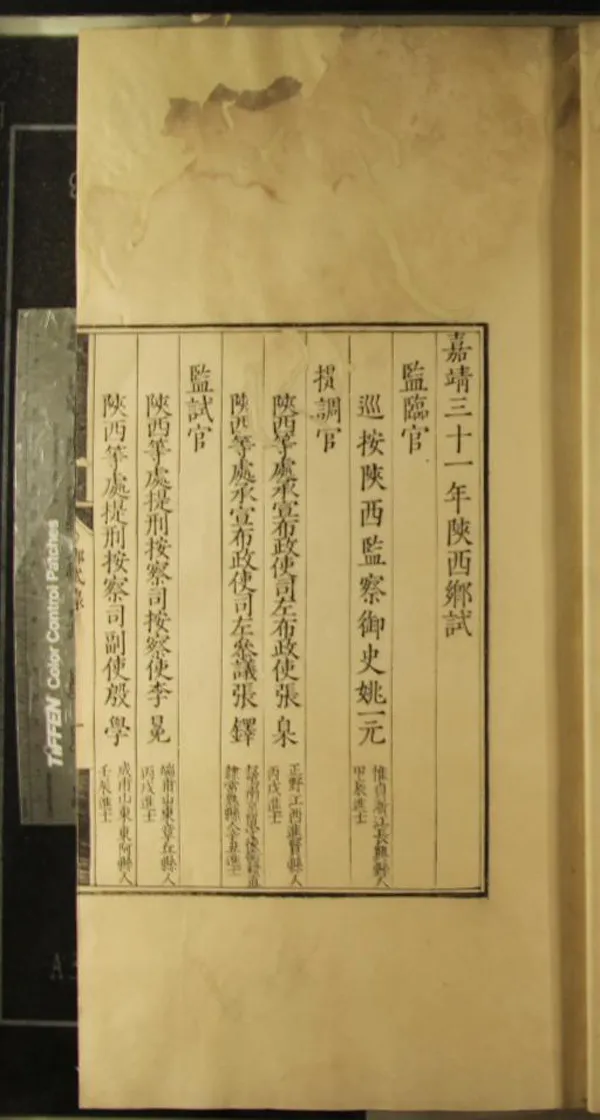 嘉靖三十一年陝西鄉試
監臨官
巡按陝西監察御史姚一元 惟貞浙江長興縣人
甲辰進士
提調官
陝西等處承宣布政使司左布政使張臬 正野江西進賢縣人
丙戌進士
陝西等處承宣布政使司左參議張鐸
隸常熟縣人 進士
監試官
陝西等處提刑按察司按察使李冕 端甫山東章丘縣人
丙戌進士
陝西等處提刑按察司副使殷學 成甫山東東阿縣人
壬辰進士
TIFFEN Color Control Patches